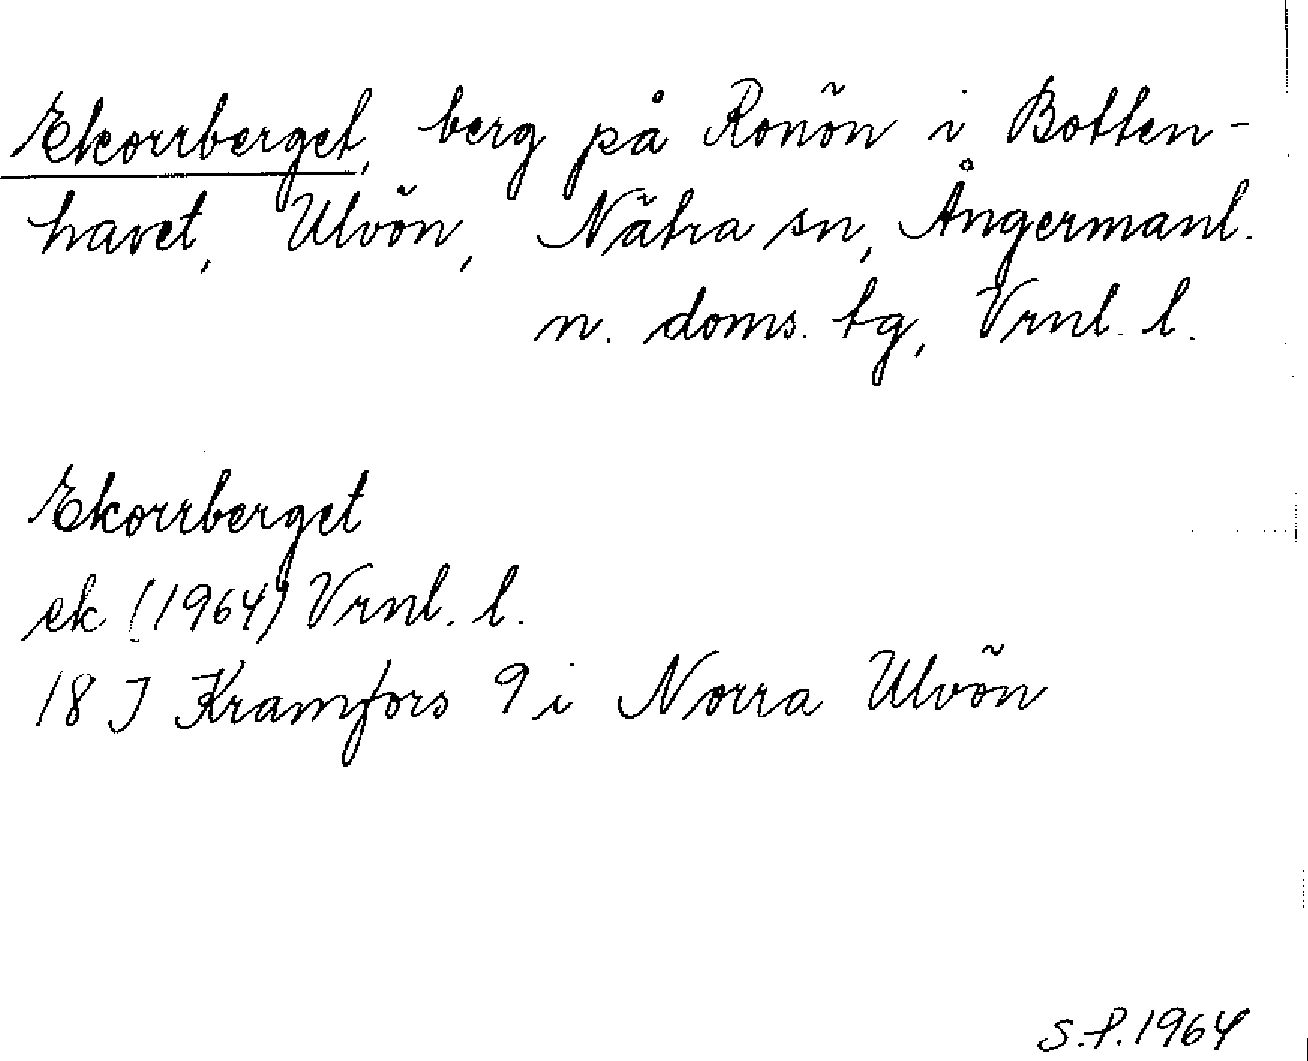 Ekorrberget, berg på Ronön i Botten-
havet, Ulvön, Nätra sn, Ångermanl.
n. doms. tg, Vrnl. l.
Ekorrberget
ek (1964) Vrnl. l.
18 J Kramfors 9 i Norra Ulvön
S.P. 1964